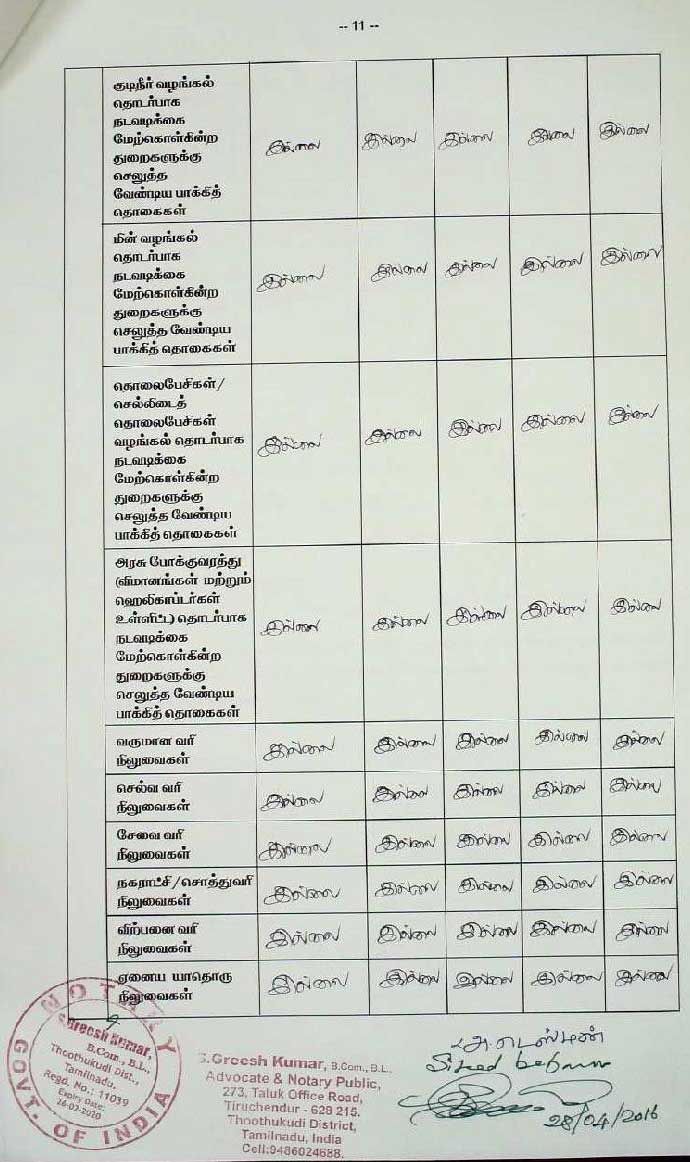 -- 11 --
குடிநீர் வழங்கல்
தொடர்பாக
நடவடிக்கை
மேற்கொள்கின்ற
துறைகளுக்கு
செலுத்த
வேண்டிய பாக்கித்
தொகைகள்
இல்லை இல்லை இல்லை இல்லை இல்லை
மின் வழங்கல்
தொடர்பாக
நடவடிக்கை
மேற்கொள்கின்ற
துறைகளுக்கு
செலுத்த வேண்டிய
பாக்கித் தொகைகள்
இல்லை இல்லை இல்லை இல்லை இல்லை
தொலைபேசிகள்/
செல்லிடைத்
தொலைபேசிகள்
வழங்கல் தொடர்பாக
நடவடிக்கை
மேற்கொள்கின்ற
துறைகளுக்கு
செலுத்த வேண்டிய
பாக்கித் தொகைகள்
இல்லை இல்லை இல்லை இல்லை இல்லை
அரசு போக்குவரத்து
(விமானங்கள் மற்றும்
ஹெலிகாப்டர்கள்
உள்ளிட்ட) தொடர்பாக
நடவடிக்கை
மேற்கொள்கின்ற
துறைகளுக்கு
செலுத்த வேண்டிய
பாக்கித் தொகைகள்
இல்லை இல்லை இல்லை இல்லை இல்லை
வருமான வரி
நிலுவைகள்
இல்லை இல்லை இல்லை இல்லை இல்லை
செல்வ வரி
நிலுவைகள்
இல்லை இல்லை இல்லை இல்லை இல்லை
சேவை வரி
நிலுவைகள்
இல்லை இல்லை இல்லை இல்லை இல்லை
நகராட்சி/சொத்துவரி
நிலுவைகள்
இல்லை இல்லை இல்லை இல்லை இல்லை
விற்பனை வரி
நிலுவைகள்
இல்லை இல்லை இல்லை இல்லை இல்லை
ஏனைய யாதொரு
நிலுவைகள்
இல்லை இல்லை இல்லை இல்லை இல்லை
NOTARY
S.Greesh Kumar,
B.Com., B.L.,
Thoothukudi Dist.,
Tamilnadu.
Regd. No.: 11039
Expiry Date:
26-02-2020
GOVT. OF INDIA
S.Greesh Kumar, B.Com., B.L.,
Advocate & Notary Public,
273, Taluk Office Road,
Tiruchendur - 628 215.
Thoothukudi District,
Tamilnadu, India
Cell:9486024688.
28/04/2016